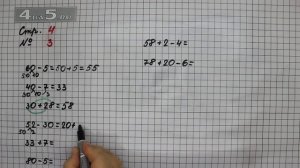 Стр. 4
№ 3
60 - 5 = 50 + 5 = 55
50 10
40 - 7 = 33
30 10
30 + 28 = 58
52 - 30 = 20 +
50 2
33 + 7 =
80 - 5 =
58 + 2 - 4 =
78 + 20 - 6 =